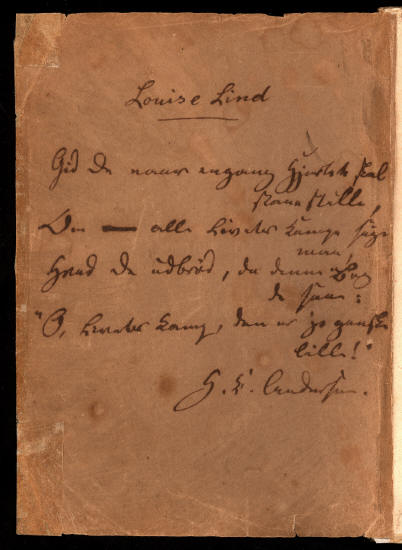 Louise Lind
Gid De naar engang Hjertet skal
staae stille,
Om alle Livets Kampe sige
maa,
Hvad De udbrød, da denne Bog
De saae:
"O, Livets Kamp, den er jo ganske
lille!"
H. C. Andersen.